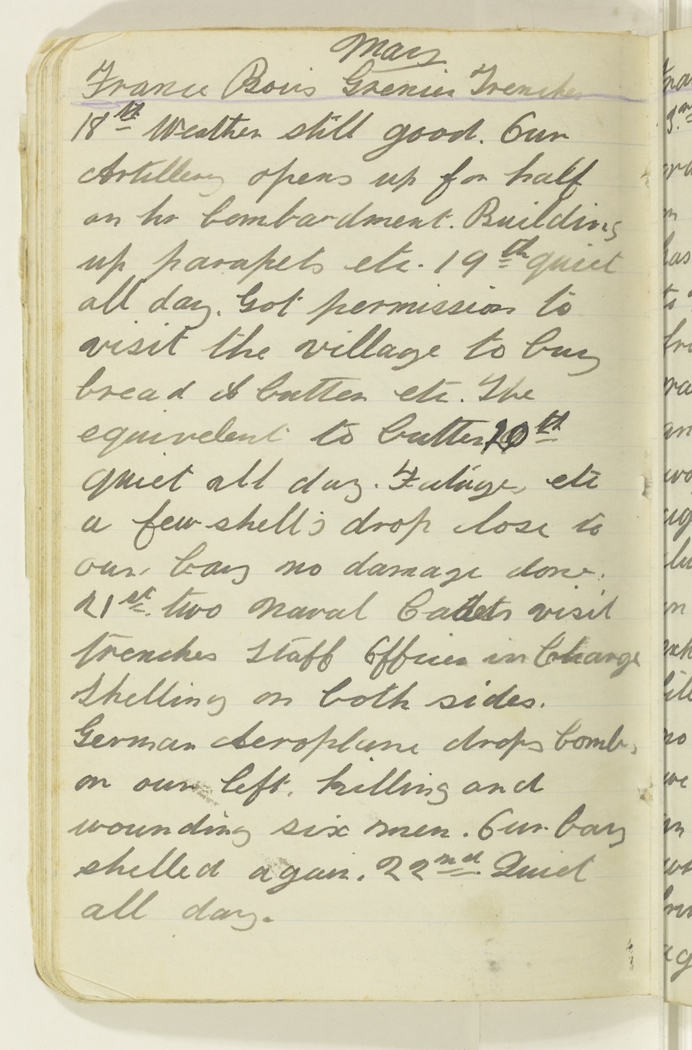 May
France Bois Grenier Trenches
18th Weather still good. Our
Artillery opens up for half
an hr bombardment. Building
up parapets etc. 19th quiet
all day. Got permission to
visit the village to buy
bread & butter etc. The
equivelent to butter 20th
quiet all day. Fatigues etc
a few shells drop close to
our bay no damage done.
21st two Naval Cadets visit
trenches Staff Officer in Charge
Shelling on both sides.
German Aeroplane drops bombs
on our left. killing and
wounding six men. Our bay
shelled again. 22nd Quiet
all day.